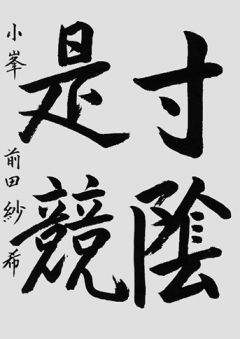 寸陰
是競
小峯 前田紗希